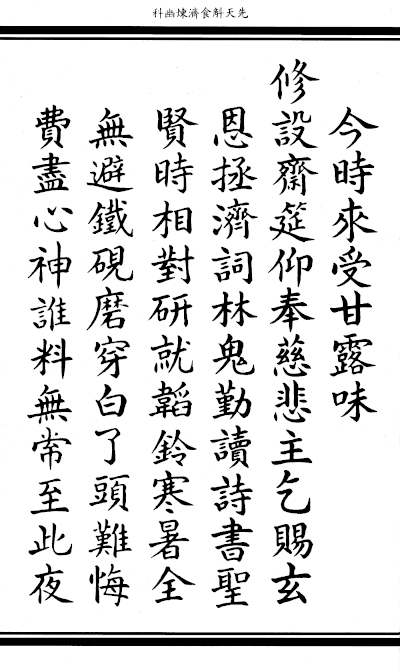 先天斛食濟煉幽科
今時來受甘露味
修設齋筵仰奉慈悲主乞賜玄
恩拯濟詞林鬼勤讀詩書聖
賢時相對研就韜鈐寒暑全
無避鐵硯磨穿白了頭難悔
費盡心神誰料無常至此夜